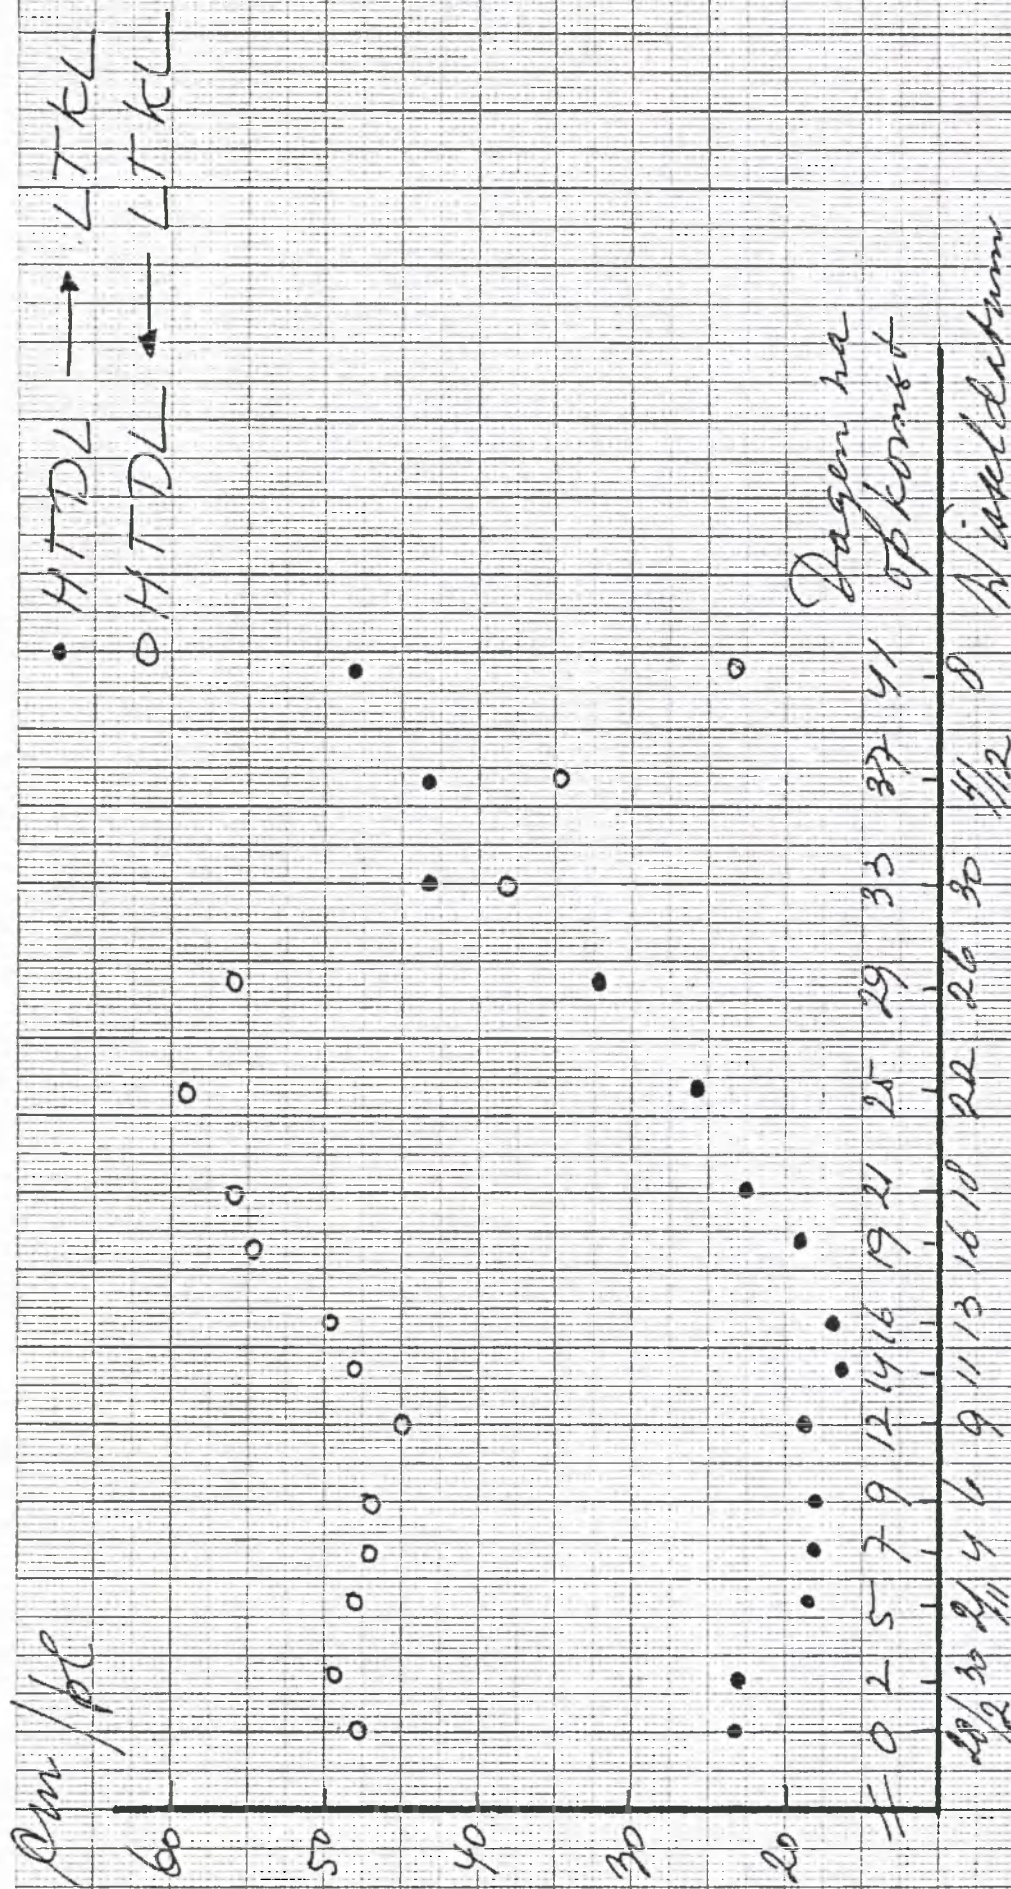 cm/pl
• HTDL → LTKL
○ HTDL ← LTKL
60
50
40
30
20
Dagen na
opkomst
0 2 5 7 9 12 14 16 19 21 25 29 33 37 41
30 2/11 4 6 9 11 13 16 18 22 26 30 4/12 8
Wisseldatum